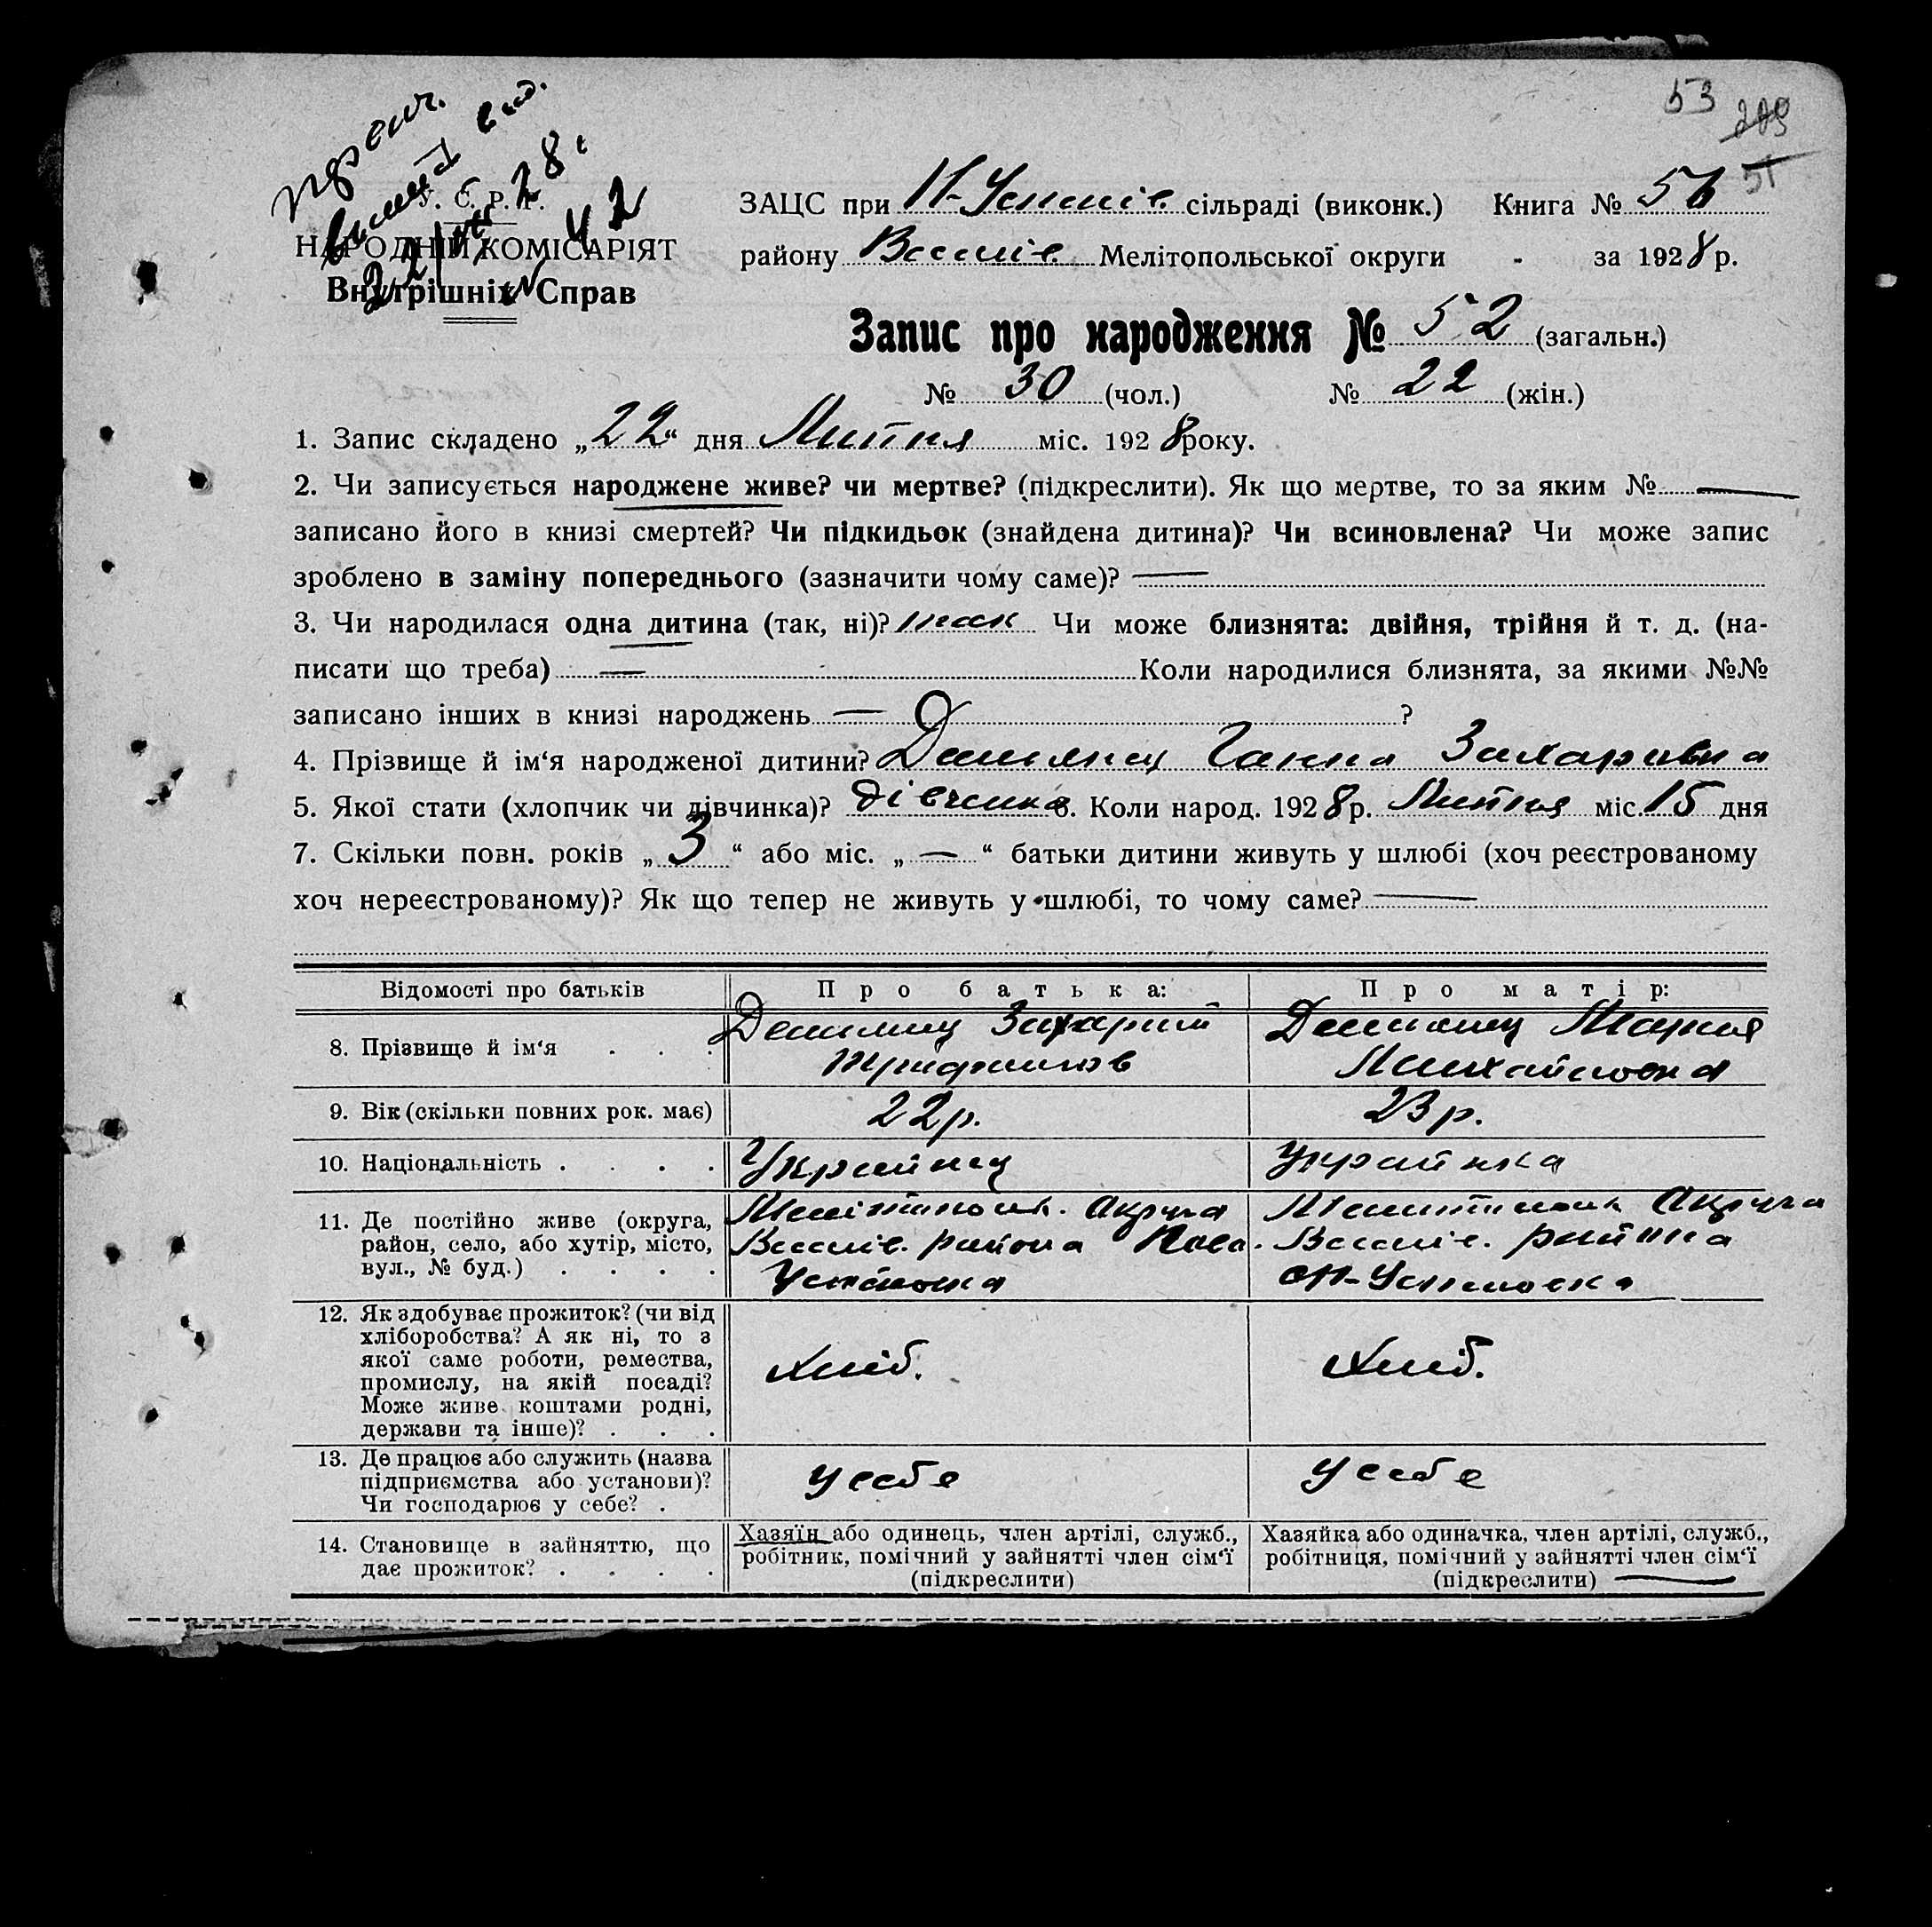 53
У. С. Р. Р.
НАРОДНІЙ КОМІСАРІЯТ
Внутрішніх Справ
ЗАЦС при сільраді (виконк.) Книга №
району Веселів. Мелітопольської округи - за 1928 р.
Запис про народження № 52 (загальн.)
№ 30 (чол.) № 22 (жін.)
1. Запис складено „22“ дня Липня міс. 1928 року.
2. Чи записується народжене живе? чи мертве? (підкреслити). Як що мертве, то за яким № —
записано його в книзі смертей? Чи підкидьок (знайдена дитина)? Чи всиновлена? Чи може запис
зроблено в заміну попереднього (зазначити чому саме)? —
3. Чи народилася одна дитина (так, ні)? так Чи може близнята: двійня, трійня й т. д. (на-
писати що треба) — Коли народилися близнята, за якими №№
записано інших в книзі народжень — ?
4. Прізвище й ім‘я народженої дитини? Ганна Захаривна
5. Якої стати (хлопчик чи дівчинка)? дівчинка 6. Коли народ. 1928 р. Липня міс. 15 дня
7. Скільки повн. років „3“ або міс. „—“ батьки дитини живуть у шлюбі (хоч реєстрованому
хоч нереєстрованому)? Як що тепер не живуть у шлюбі, то чому саме? —
Відомості про батьків Про батька: Про матір:
8. Прізвище й ім‘я . . . Захарий Мария
Михайловна
9. Вік (скільки повних рок. має) 22 р. 23 р.
10. Національність . . . . Украинец Украинка
11. Де постійно живе (округа,
район, село, або хутір, місто,
вул., № буд.) . . . .
Округа
Веселів. района
Округа
Веселів. района
12. Як здобуває прожиток? (чи від
хліборобства? А як ні, то з
якої саме роботи, ремества,
промислу, на якій посаді?
Може живе коштами родні,
держави та інше)? . . .
хліб. хліб.
13. Де працює або служить (назва
підприємства або установи)?
Чи господарює у себе? .
у себе у себе
14. Становище в зайняттю, що
дає прожиток? . . . .
Хазяїн або одинець, член артілі, служб.,
робітник, помічний у зайнятті член сім‘ї
(підкреслити)
Хазяйка або одиначка, член артілі, служб.,
робітниця, помічний у зайнятті член сім‘ї
(підкреслити) —